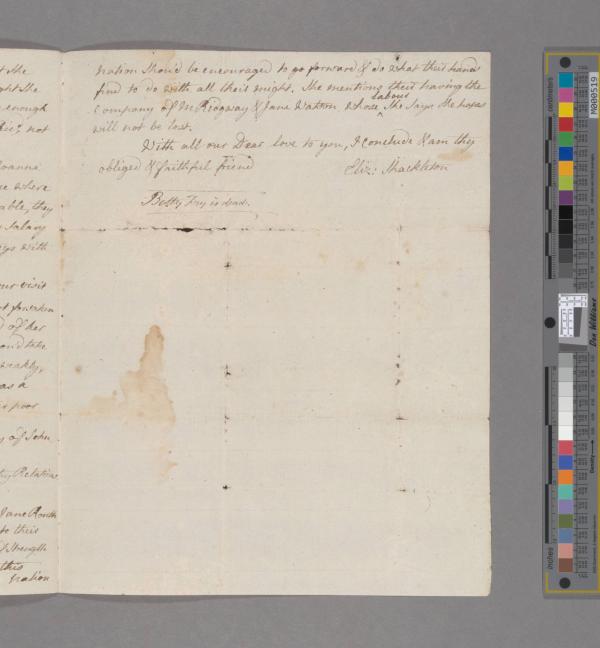 t She
ght She
e enough
not
Joanna
e where
able, they
Salary
ys with
our visit
ot forsaken
d of her
ond take
weakly,
as a
poor
y of John
try Relations
Jane Routh
to their
Strength
this
nation
nation Shou'd be encouraged to go forward & do what their hands
find to do with all their might. She mentions their having the
labour
company of M: Ridgway & Jane Watson whose ^ She Says She hopes
will not be lost.
With all our Dear love to you, I conclude & am thy
obliged & faithful friend Eliz: Shackleton
Betty Fry is dead.
M000519
centimetres
Don Williams
Density
inches